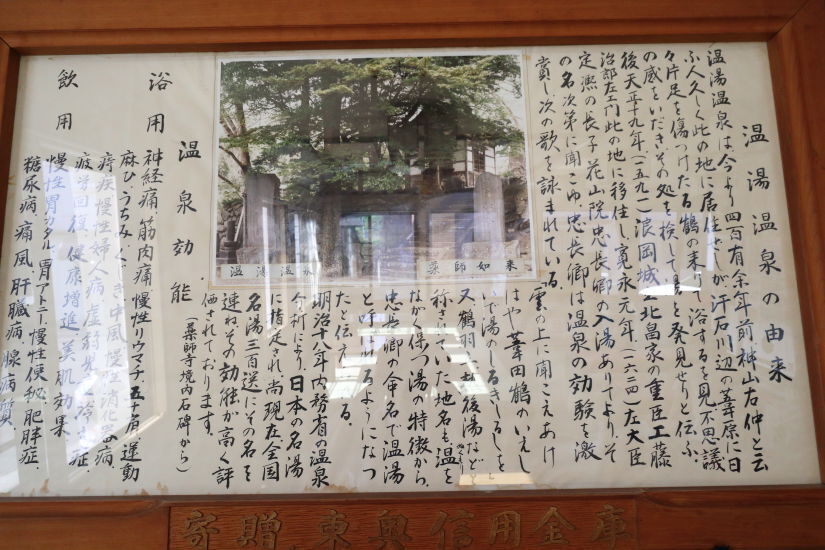 温湯温泉の由来
温湯温泉は今より四百有余年前神山右仲と云
ふ人久しく此の地に居住せしが汗石川辺の葦原に日
々片足を傷つけたる鶴の来りて浴するを見不思議
の感をいだきその処を検して湯を発見せりと伝ふ
後天正十九年(一五九一)浪岡城主北畠家の重臣工藤
治郎左エ門此の地に移住し寛永元年(一六二四)左大臣
定熙の長子花山院忠長卿の入湯ありてより、そ
の名次第に聞こゆ、忠長卿は温泉の効験を激
賞し次の歌を詠まれている。
雲の上に聞こえあげ
はや葦田鶴のいえし
いで湯のしるきしるしを
又鶴羽の湯後湯などと
称されていた地名も温を
ながく保つ湯の特徴から、
忠長卿の命名で温湯
と呼ばれるようになっ
たと伝えられる。
明治十八年内務省の温泉
分析により、日本の名湯
に指定され尚現在全国
名湯三百選にその名を
連ねその効能が高く評
価されております。
(薬師寺境内石碑から)
温湯温泉
薬師如来
温泉効能
浴用
神経痛、筋肉痛、慢性リウマチ、五十肩、運動
麻ひ、うちみ、くじき、中風、慢性消化器病、
痔疾、慢性婦人病、虚弱児、冷え症
疲労回復、健康増進、美肌効果
飲用
慢性胃カタル、胃アトニー、慢性便秘、肥胖症、
糖尿病、痛風、肝臓病、腺病質
寄贈 東奥信用金庫